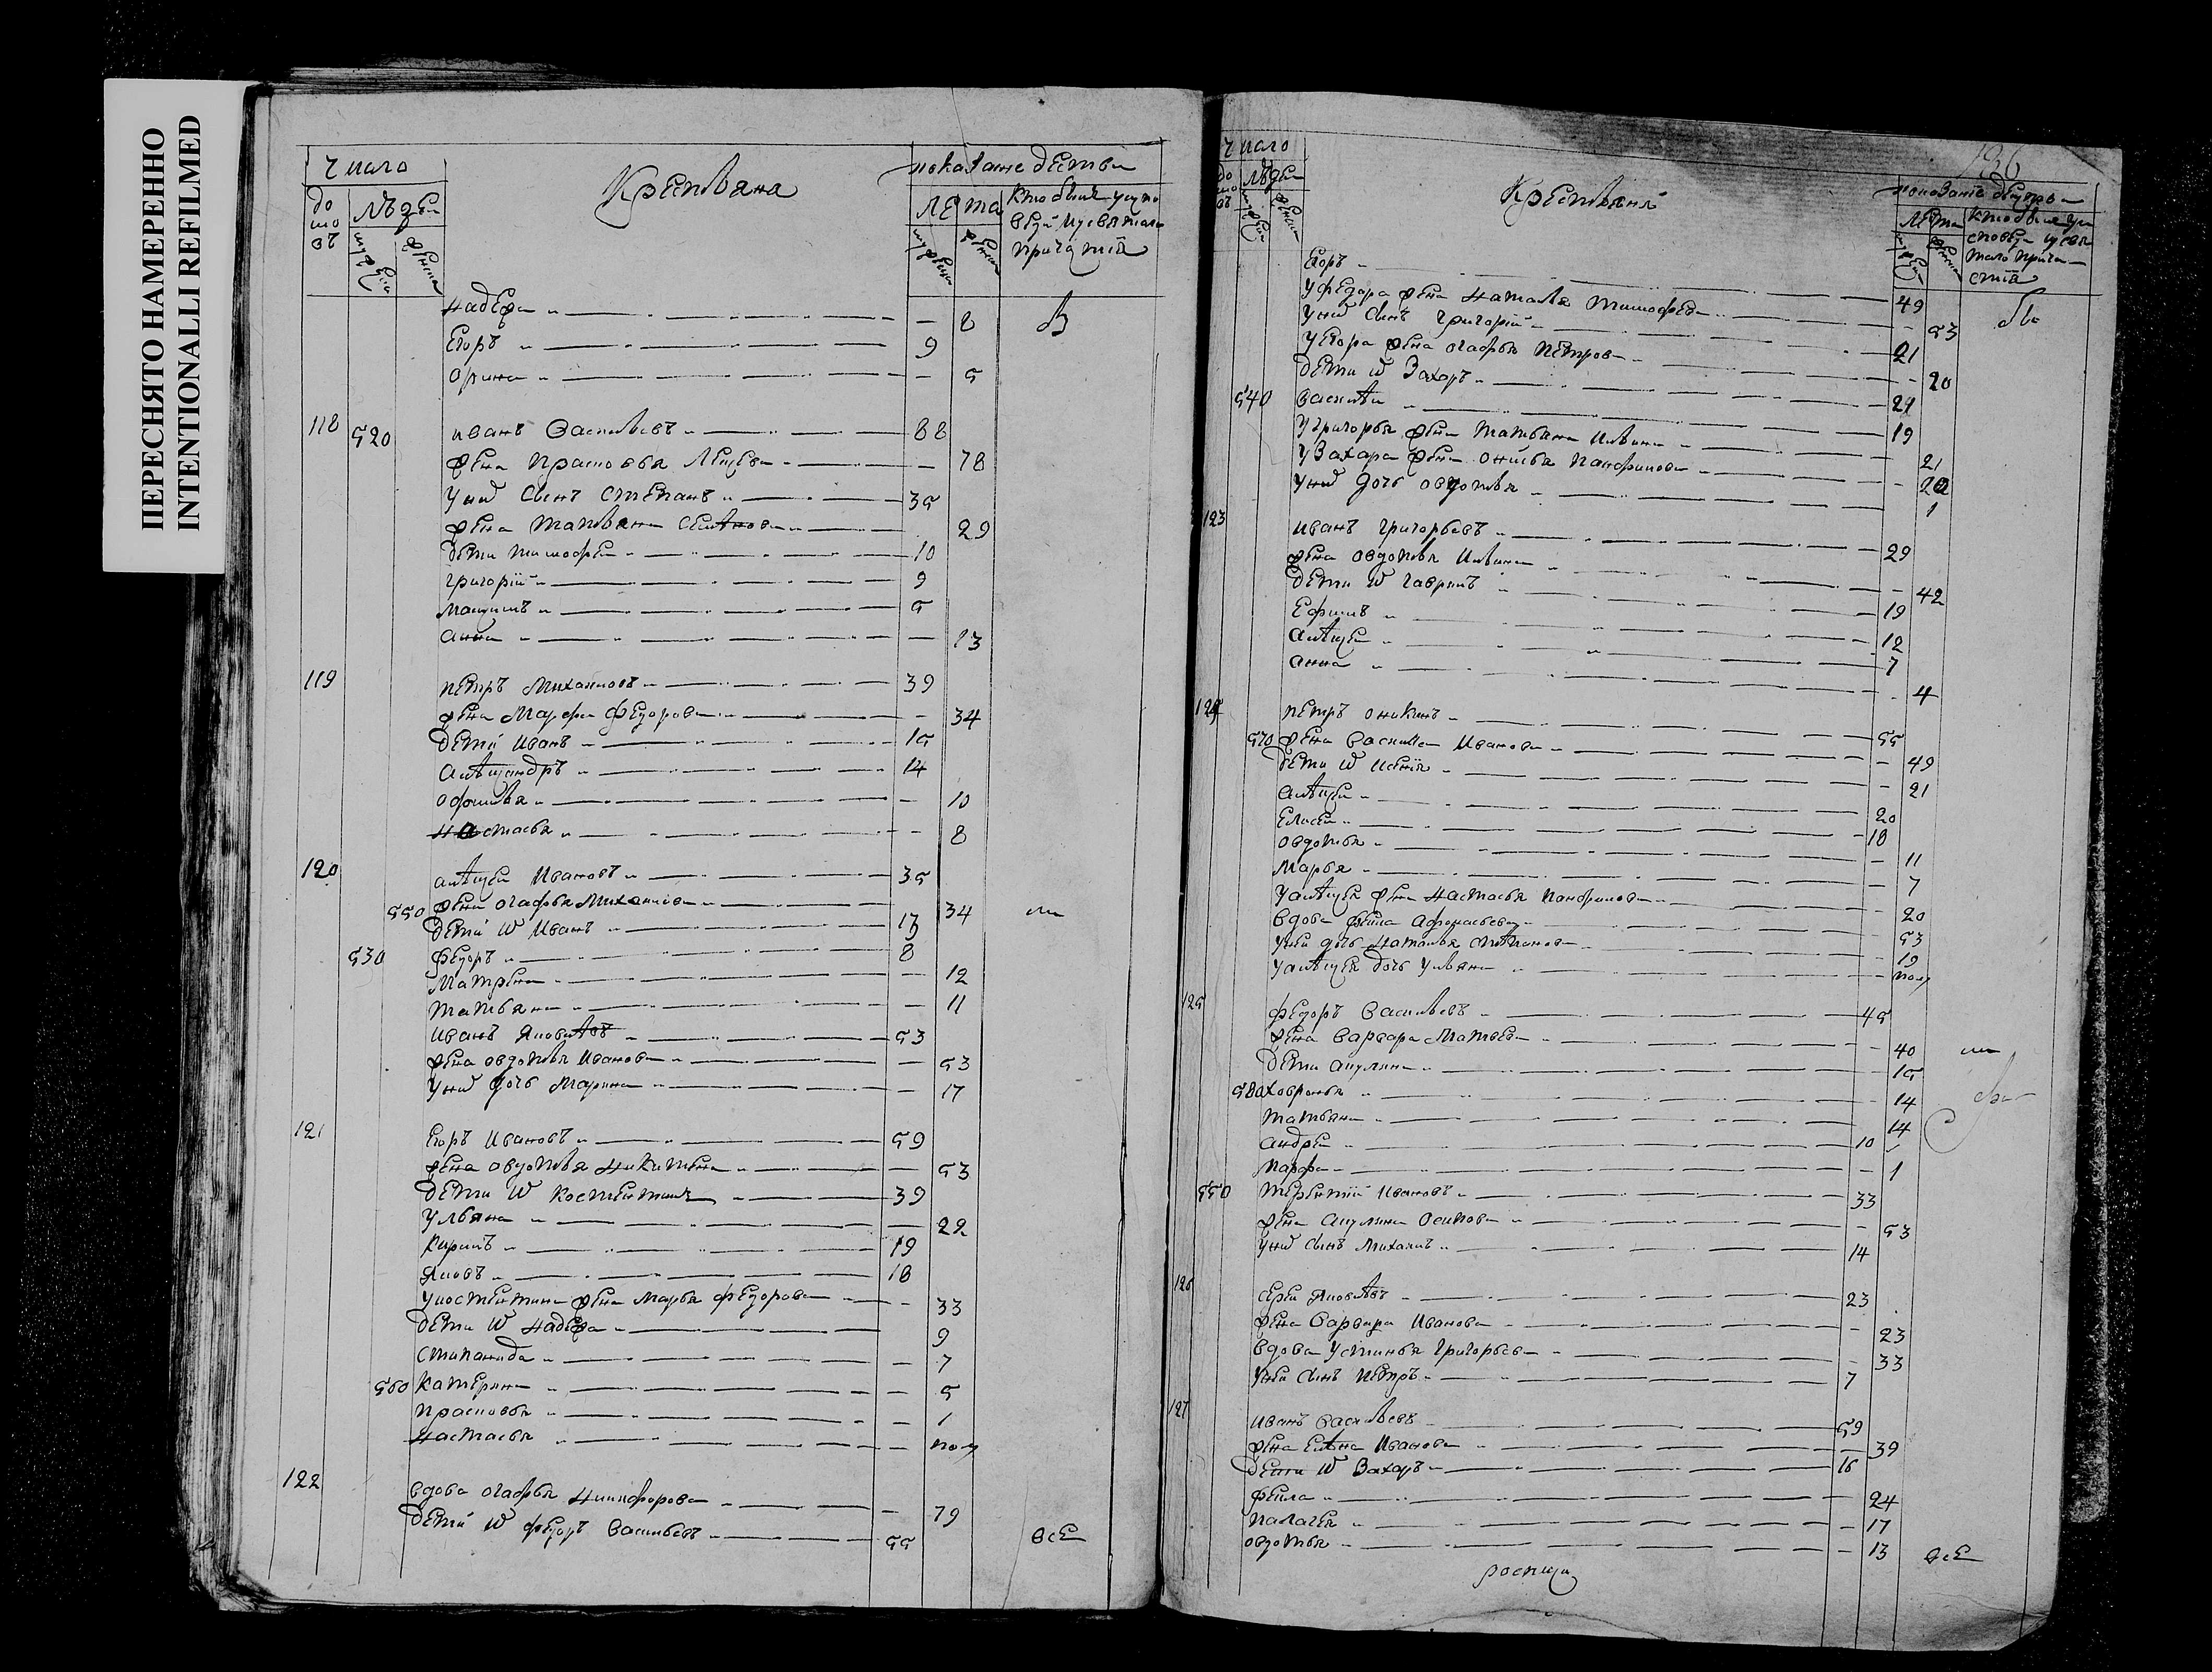 ПЕРЕСНЯТО НАМЕРЕННО
INTENTIONALLI REFILMED
число
домовъ
людей
Крестьяне
показание действа
лета
кто былъ у испо
веди и у святаго
причастія
Надежда 8
Егоръ 9
Орина 5
118 520 Иванъ Васильевъ 88
жена Прасковья 78
У них сынъ Степанъ 35
жена Татьяна Семенова 29
дети Тимофей 10
Григорій 9
Максимъ 5
Анна 13
119 Петръ Михаиловъ 39
жена Марфа Федорова 34
дети Иванъ 15
Александръ 14
Офимья 10
Настасья 8
120 Алексей Ивановъ 35
550 жена Огафья Михаилова 34
дети Иванъ 17
530 Федоръ 8
Матрена 12
Татьяна 11
Иванъ Яковлевъ 53
жена Овдотья Иванова 53
У них дочь Марина 17
121 Егоръ Ивановъ 59
жена Овдотья Никитина 53
дети Костентинъ 39
Ульяна 22
Кирилъ 19
Яковъ 18
У Костентина жена Марья Федорова 33
дети Надежда 9
Степанида 7
560 Катерина 5
Прасковья 1
Настасья пол
122 вдова Огафья Никифорова 79
дети Федоръ Васильевъ 55
все
136
число
домовъ
людей
Крестьяня
лета
Егоръ 49
У Федора жена Наталья Тимофеева 53
У них сынъ Григорій 21
У Егора жена Огафья Петрова 20
дети Захаръ 21
540 Василей 19
У Григорья жена Татьяна 21
У Захара жена Онисья Панфилова 20
У них дочь Овдотья 1
123 Иванъ Григорьевъ 29
жена Овдотья 42
дети Гаврилъ 19
Ефимъ 12
Алексей 7
Анна 4
124 Петръ Оникинъ 55
570 жена Василиса Иванова 49
дети Ксенія 21
Алексей 20
Елисей 18
Овдотья 11
Марья 7
У Алексея жена Настасья Панфилова 20
вдова Фекла Афонасьева 53
У ней дочь Наталья 19
У Алексея дочь Ульяна пол
125 Федоръ Васильевъ 45
жена Варвара Матвеева 40
дети Акулина 15
580 Ховронья 14
Татьяна 14
Андрей 10
Марфа 1
550 Терентій Ивановъ 33
жена Акулина Осипова 53
У них сынъ Михаилъ 14
126 Сергей Яковлевъ 23
жена Варвара Иванова 23
вдова Устинья Григорьева 33
У ней сынъ Петръ 7
127 Иванъ Васильевъ 59
жена Елена Иванова 39
дети Захаръ 16
Фекла 24
Палагея 17
Овдотья 13
все
роспись